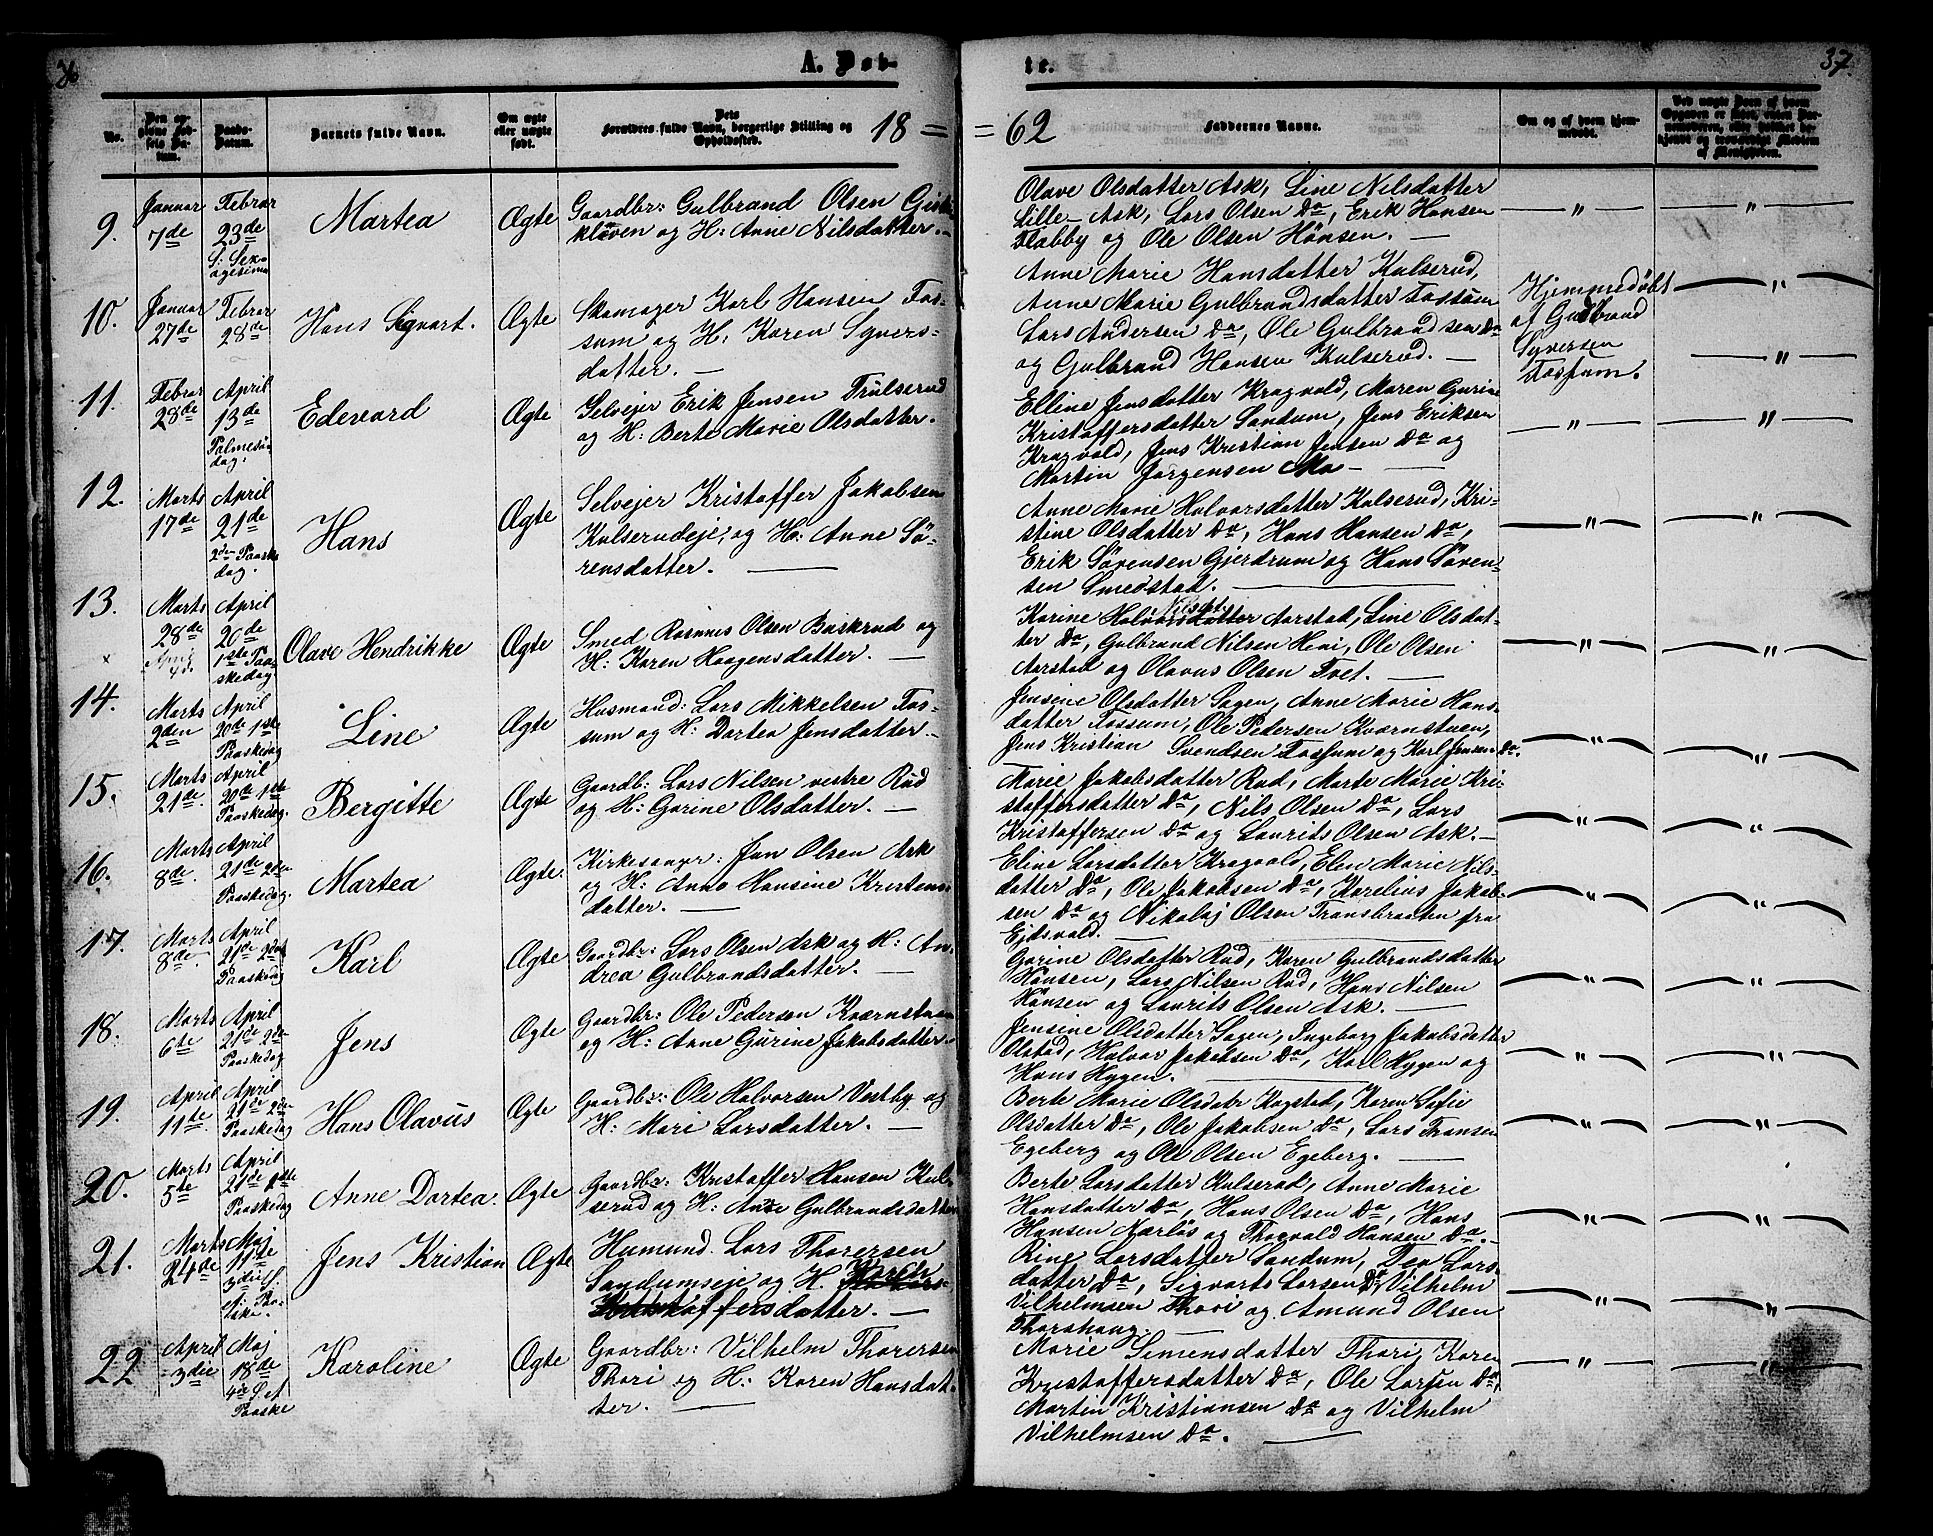 A. Døb-
te.
37.
No.
Den opgivne Fødsels Datum.
Daabs-Datum.
Barnets fulde Navn.
Om ægte eller uægte født.
Forældres fulde Navn, borgerlige Stilling og Opholdssted.
18 = = 62
Faddernes Navne.
Om og af hvem hjemmedøbt.
9.
Januar 7de
Februar 23de S: Sexagesima
Martea
Ægte
Gaardbr: Gulbrand Olsen
kleven og H: Anne Nilsdatter. —
Olave Olsdatter Ask, Line Nilsdatter
Lille-Ask, Lars Olsen Do, Erik Hansen
Flabby og Ole Olsen Hønsen. —
— " —
— " —
10.
Januar 27de
Februar 28de
Hans Sigvart.
Ægte
Skomager Karl Hansen Fos-
sum og H: Karen Syvers-
datter. —
Anne Marie Hansdatter Kulserud,
Anne Marie Gulbrandsdatter Fossum
Lars Andersen Do, Ole Gulbrandsen Do
og Gulbrand Hansen Kulserud. —
Hjemmedøbt
af Gulbrand
Syversen
Fossum.
— " —
— " —
11.
Februar 28de
April 13de Palmesøndag.
Edevard
Ægte
Selvejer Erik Jensen Trulserud
og H: Berte Marie Olsdatter.
Elline Jensdatter Kragvold, Maren Gurine
Kristoffersdatter Sandum, Jens Eriksen
Kragvold, Jens Kristian Jensen Do og
Martin Jørgensen Mo —
— " —
— " —
12.
Marts 17de
April 21de 2den Paaskedag.
Hans
Ægte
Selvejer Kristoffer Jakobsen
Kulserudeje, og H: Anne Sø-
rensdatter. —
Anne Marie Halvorsdatter Kulserud, Kri-
stine Olsdatter Do, Hans Hansen Do,
Erik Sørensen Gjerdrum og Hans Søren-
sen Smedstad. —
— " —
— " —
13.
Marts 28de
April 20de 1ste Paaskedag
Olave Hendrikke
Ægte
Smed Rasmus Olsen Buskrud og
H: Karen Haagensdatter. —
Karine Halvorsdatter Nilsdt. Aarstad, Line Olsdat-
ter Do, Gulbrand Nilsen Heni, Ole Olsen
Aarstad og Olavus Olsen Tvet. —
— " —
— " —
14.
Marts 2den
April 20de 1ste Paaskedag
Line
Ægte
Husmand: Lars Mikkelsen Fos-
sum og H: Dortea Jensdatter. —
Jensine Olsdatter Sagen, Anne Marie Hans-
datter Fossum, Ole Pedersen Kværnstuen,
Jens Kristian Svendsen Fossum og Karl Jensen Do.
— " —
— " —
15.
Marts 21de
April 20de 1ste Paaskedag.
Bergitte
Ægte
Gaardb: Lars Nilsen vestre Rud
og H: Gorine Olsdatter. —
Marie Jakobsdatter Rud, Marte Marie Kri-
stoffersdatter Do, Nils Olsen Do, Lars
Kristoffersen Do og Laurits Olsen Ask. —
— " —
— " —
16.
Marts 8de.
April 21de 2den Paaskedag.
Martea
Ægte.
Kirkesanger: Jan Olsen Ask
og H: Anne Hansine Kristens-
datter. —
Eline Larsdatter Kragvold, Elen Marie Nils-
datter Do, Ole Jakobsen Do, Karelius Jakob-
sen Do og Nikolaj Olsen Transbraaten fra
Ejdsvold. —
— " —
— " —
17.
Marts 8de
April 21de 2den Paaskedag
Karl
Ægte
Gaardbr: Lars Olsen Ask og H: An-
drea Gulbrandsdatter. —
Gorine Olsdatter Rud, Karen Gulbrandsdatter
Hønsen, Lars Nilsen Rud, Hans Nilsen
Hønsen og Laurits Olsen Ask. —
— " —
— " —
18.
Marts 6te
April 21de 2den Paaskedag
Jens
Ægte
Gaardbr: Ole Pedersen Kværnstuen
og H: Anne Gurine Jakobsdatter.
Jensine Olsdatter Sagen, Ingeborg Jakobsdatter
Olstad, Halvor Jakobsen Do, Karl Hygen og
Hans Hygen. —
— " —
— " —
19.
April 11te.
April 21de 2den Paaskedag
Hans Olavus
Ægte
Gaardbr: Ole Halvorsen Vestby og
H: Mari Larsdatter. —
Berte Marie Olsdatr Kogstad, Karen Sofie
Olsdatter Do, Ole Jakobsen Do, Lars Fransen
Egeberg og Ole Olsen Egeberg. —
— " —
— " —
20.
Marts 5te
April 21de Paaskedag
Anne Dortea.
Ægte
Gaardbr: Kristoffer Hansen Kul-
serud og H: Anne Gulbrandsdatter
Berte Larsdatter Kulserud, Anne Marie
Hansdatter Do, Hans Olsen Do, Hans
Hansen Nærløs og Thorvald Hansen Do. —
— " —
— " —
21.
Marts 24de
Maj 11te 3die S. ef. Paaske.
Jens Kristian
Ægte
Husmand. Lars Thorersen
Sandumseje og H. Karen
Kristoffersdatter. —
Rine Larsdatter Sandum, Dea Lars-
datter Do, Sigvarts Larsen Do, Vilhelm
Vilhelmsen Thori og Amund Olsen
Thorshaug. —
— " —
— " —
22
April 3die
Maj 18de 4de S. ef Paaske
Karoline
Ægte
Gaardbr: Vilhelm Thorersen
Thori og H: Karen Hansdat-
ter. —
Marie Simensdatter Thori, Karen
Kristoffersdatter Do, Ole Larsen Do,
Martin Kristiansen Do og Vilhelm
Vilhelmsen Do. —
— " —
— " —